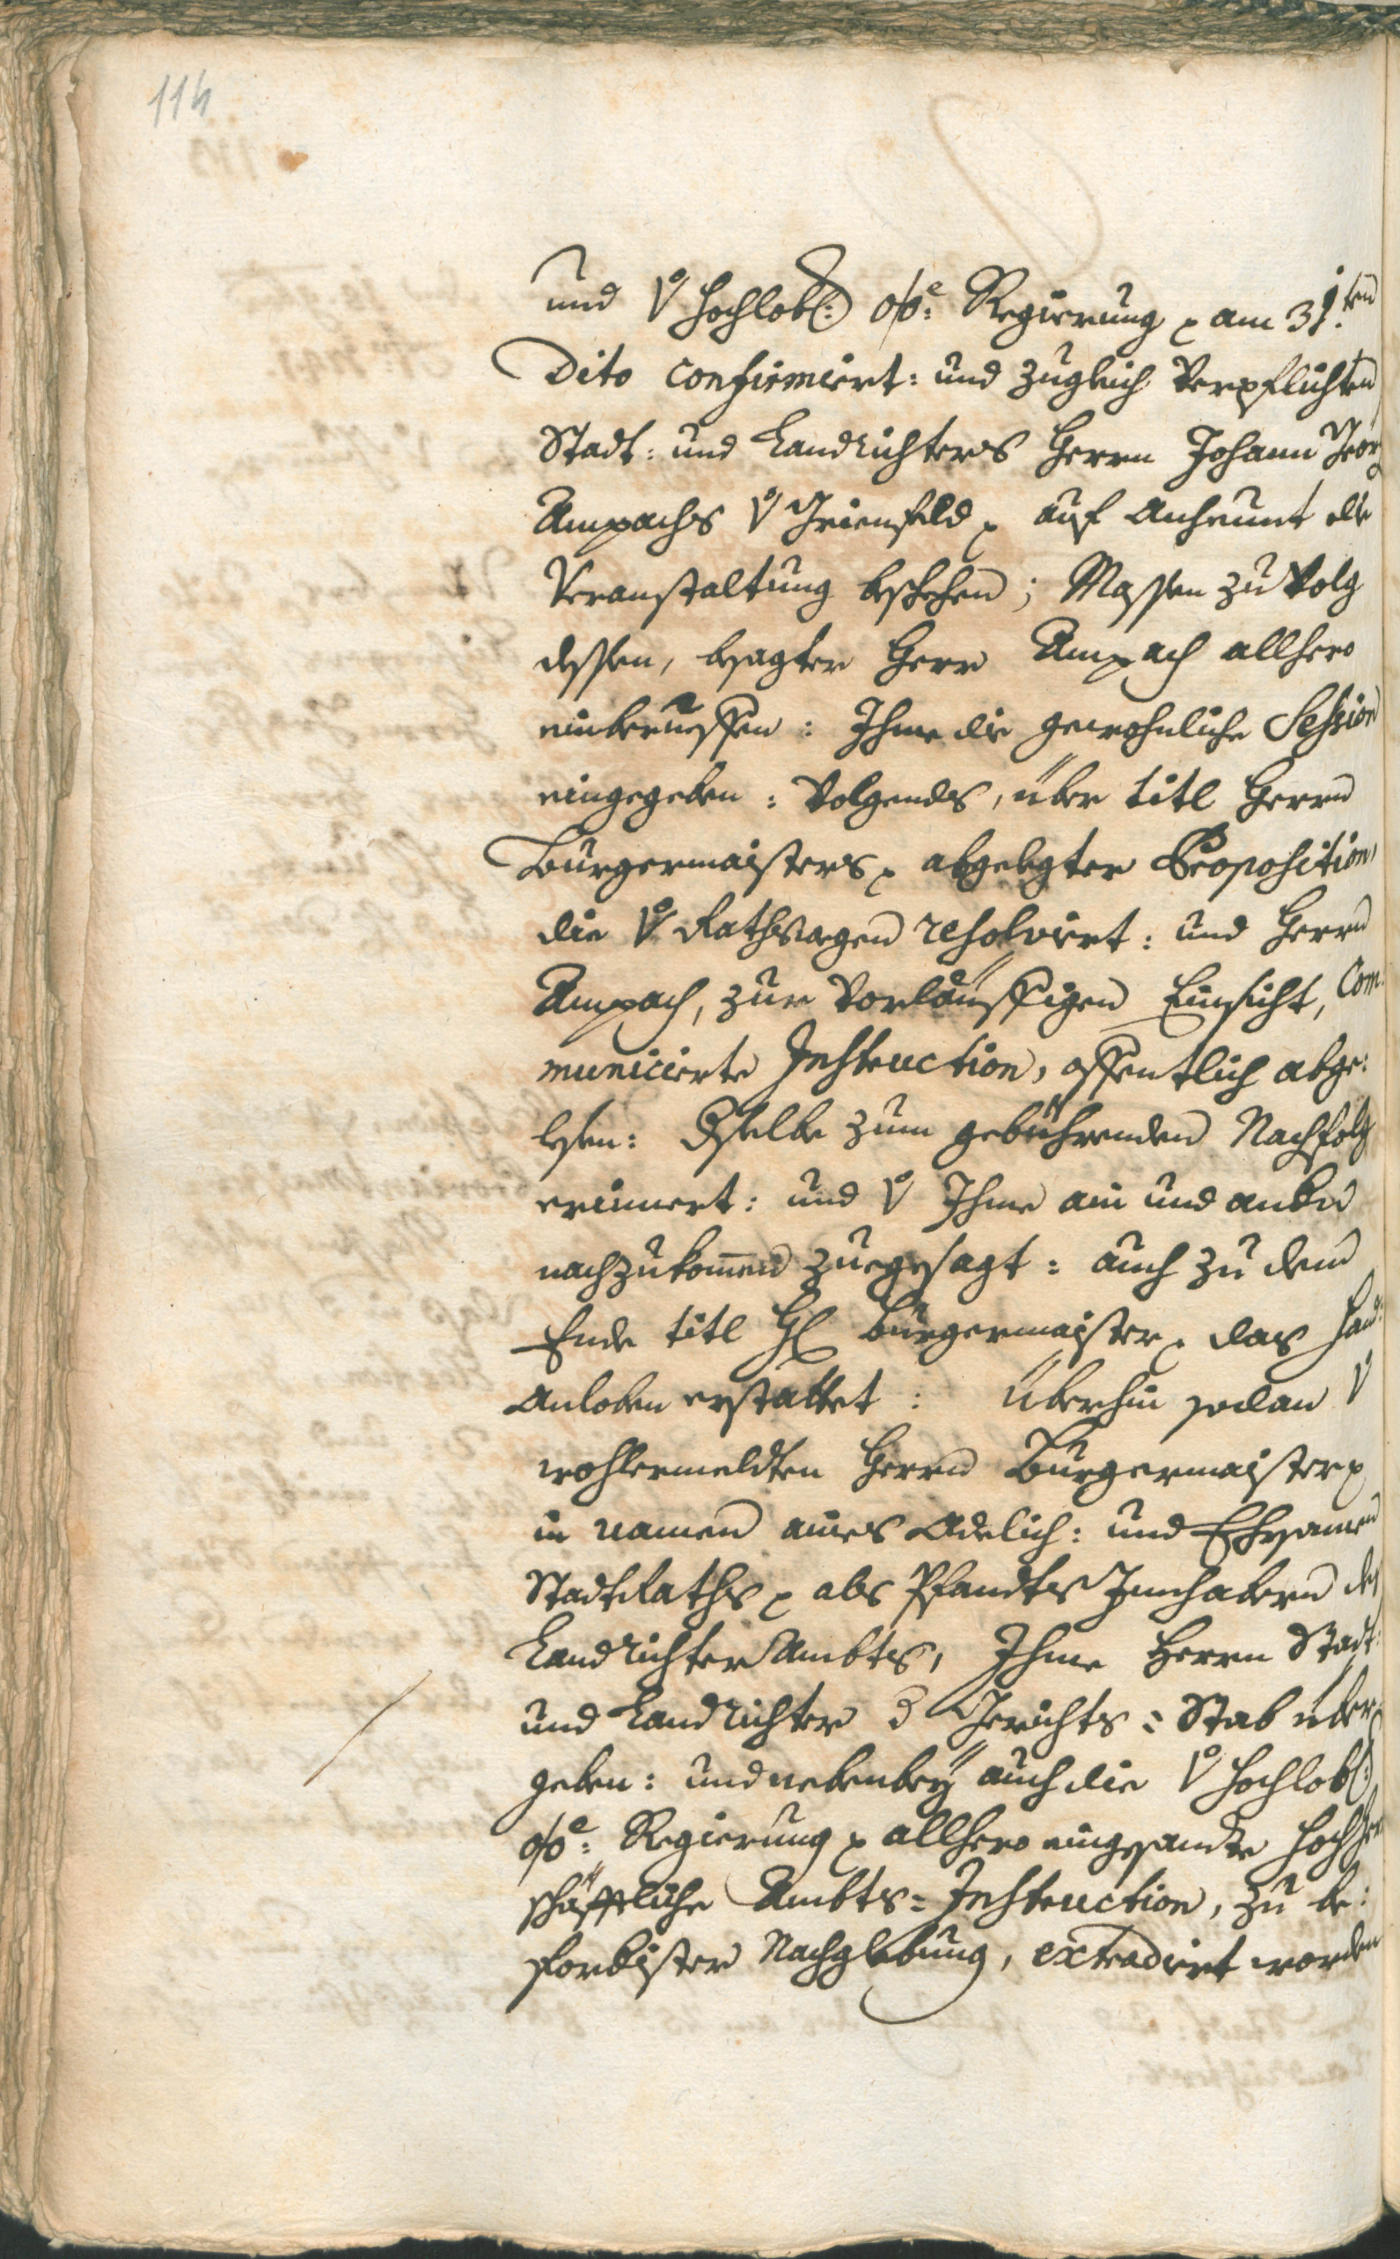 114
und v̊ hochlobl: oö:e Regierung p am 31.ten
Dito confirmiert: und zugleich verpflichten
Stadt: und Landrichters Herrn Johann Geörg
Ampachs v̊ Grienfeld p auf anheunt die
Veranstaltung beschehen; Massen zu Volg
dessen, besagter Herr Ampach allhero
einberueffen: Ihme die gewohnliche Session
eingegeben: Volgends, über titl Herrn
Burgermaisters p abgelegter Proposition,
die v̊ Raths wegen resolviert: und Herrn
Ampach, zur vorläuffigen Einsicht, Com-
municierte Instruction, offentlich abge:
lesen: dselbe zum gebührenden Nachfolg
erinnert: und v̊ Ihme ain und anders
nachzukom̅en zuegesagt: auch zu dem
Ende titl Hl Burgermaister p das Hand:
Anloben erstattet: Überhin sodan v̊
wohlermeldten Herrn Burgermaister p
in namen aines Adelich: und Ehrsamen
StadtRaths p als Pfandts Innhabern des
Landrichter Ambts, Ihme Herrn Stadt:
und Landrichter d Gerichts: Stab über
geben: und nebenbey auch die v̊ hochlobl:
oö:e Regierung p allhero eingesandte hochher
schäfftliche Ambts: Instruction, zu be:
sorbister Nachglebung, extradiert worden